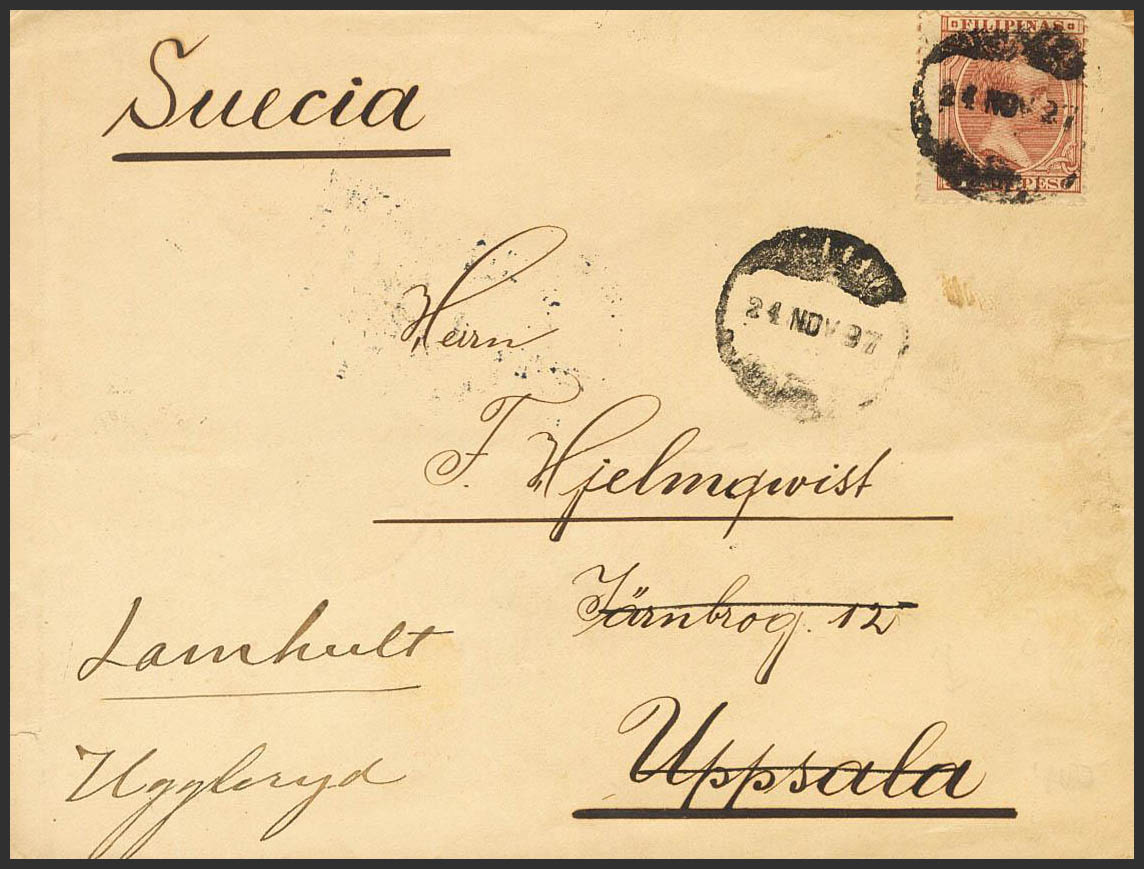 Suecia
FILIPINAS
24 NOV 97
PESO
24 NOV 97
Herrn
F. Hjelmqwist
Järnbrog. 12
Uppsala
Lamhult
Uggleryd